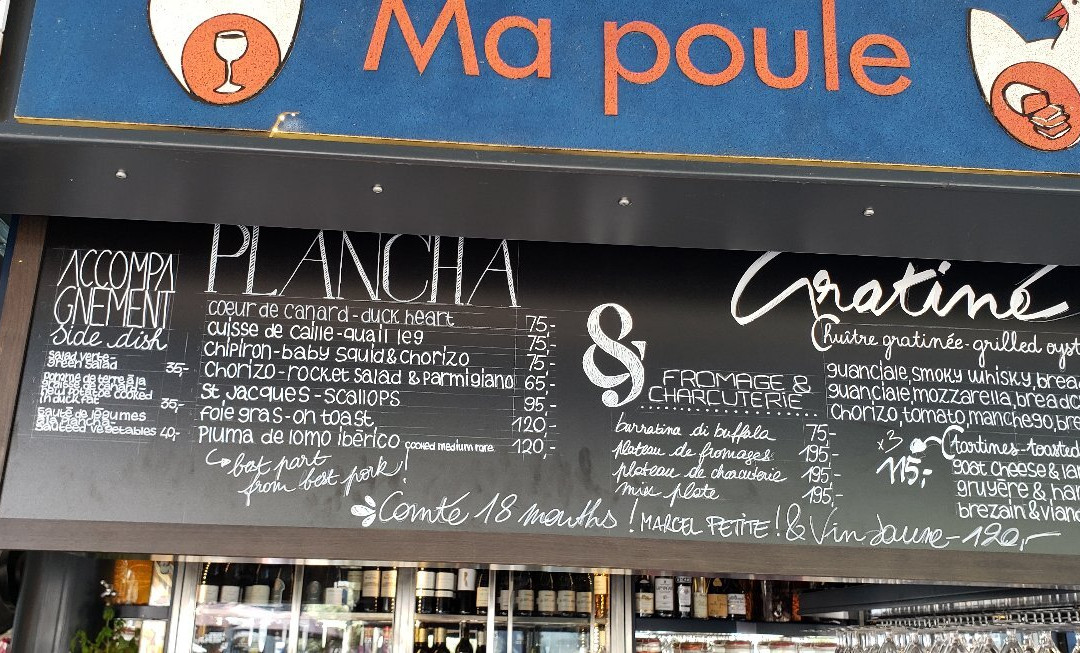 Ma poule
ACCOMPA
GNEMENT
side dish
Salad verte-
green salad 35,-
in duck fat 35,-
Sauté de légumes
à la Plancha-
sauteed vegetables 40,-
PLANCHA
coeur de canard - duck heart 75,-
cuisse de caille - quail leg 75,-
chipiron - baby squid & chorizo 75,-
chorizo - rocket salad & parmigiano 65,-
St Jacques - scallops 95,-
foie gras - on toast 120,-
Pluma de lomo ibêrico cooked medium rare 120,-
bat part
from best pork!
&
FROMAGE &
CHARCUTERIE
burratina di buffala 75,-
plateau de fromages 195,-
plateau de charcuterie 195,-
mix plate 195,-
Gratiné
huître gratinée - grilled oyst
guanciale, smoky whisky, brea
guanciale, mozzarella, breadc
chorizo, tomato, manchego, bre
x3
115,-
tartines - toasted
goat cheese & la
gruyère & ha
brezain & vian
Comté 18 mouths ! MARCEL PETITE ! & Vin Jaune - 120,-